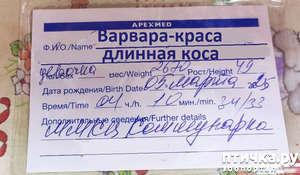 APEXMED
Ф.И.О/Name Варвара-краса
длинная коса
девочка Вес/Weight 2670 Рост/Height 49
Дата рождения/Birth Date 05 марта 25
Время/Time 04 ч./h. 10 мин./min. 34/33
Дополнительные сведения/Further details
ММКЦ Коммунарка
птичка.ру